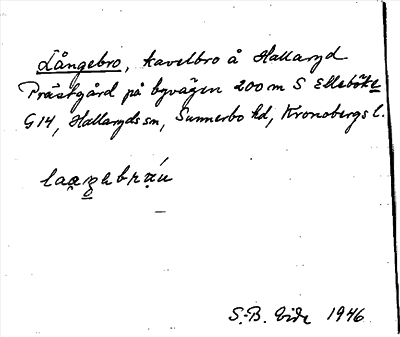 Långebro, kavelbro å Hallaryd
Prästgård på byvägen 200 m S Elleböke
G14, Hallaryds sn, Sunnerbo hd, Kronobergs l.
S.-B. Vide 1946